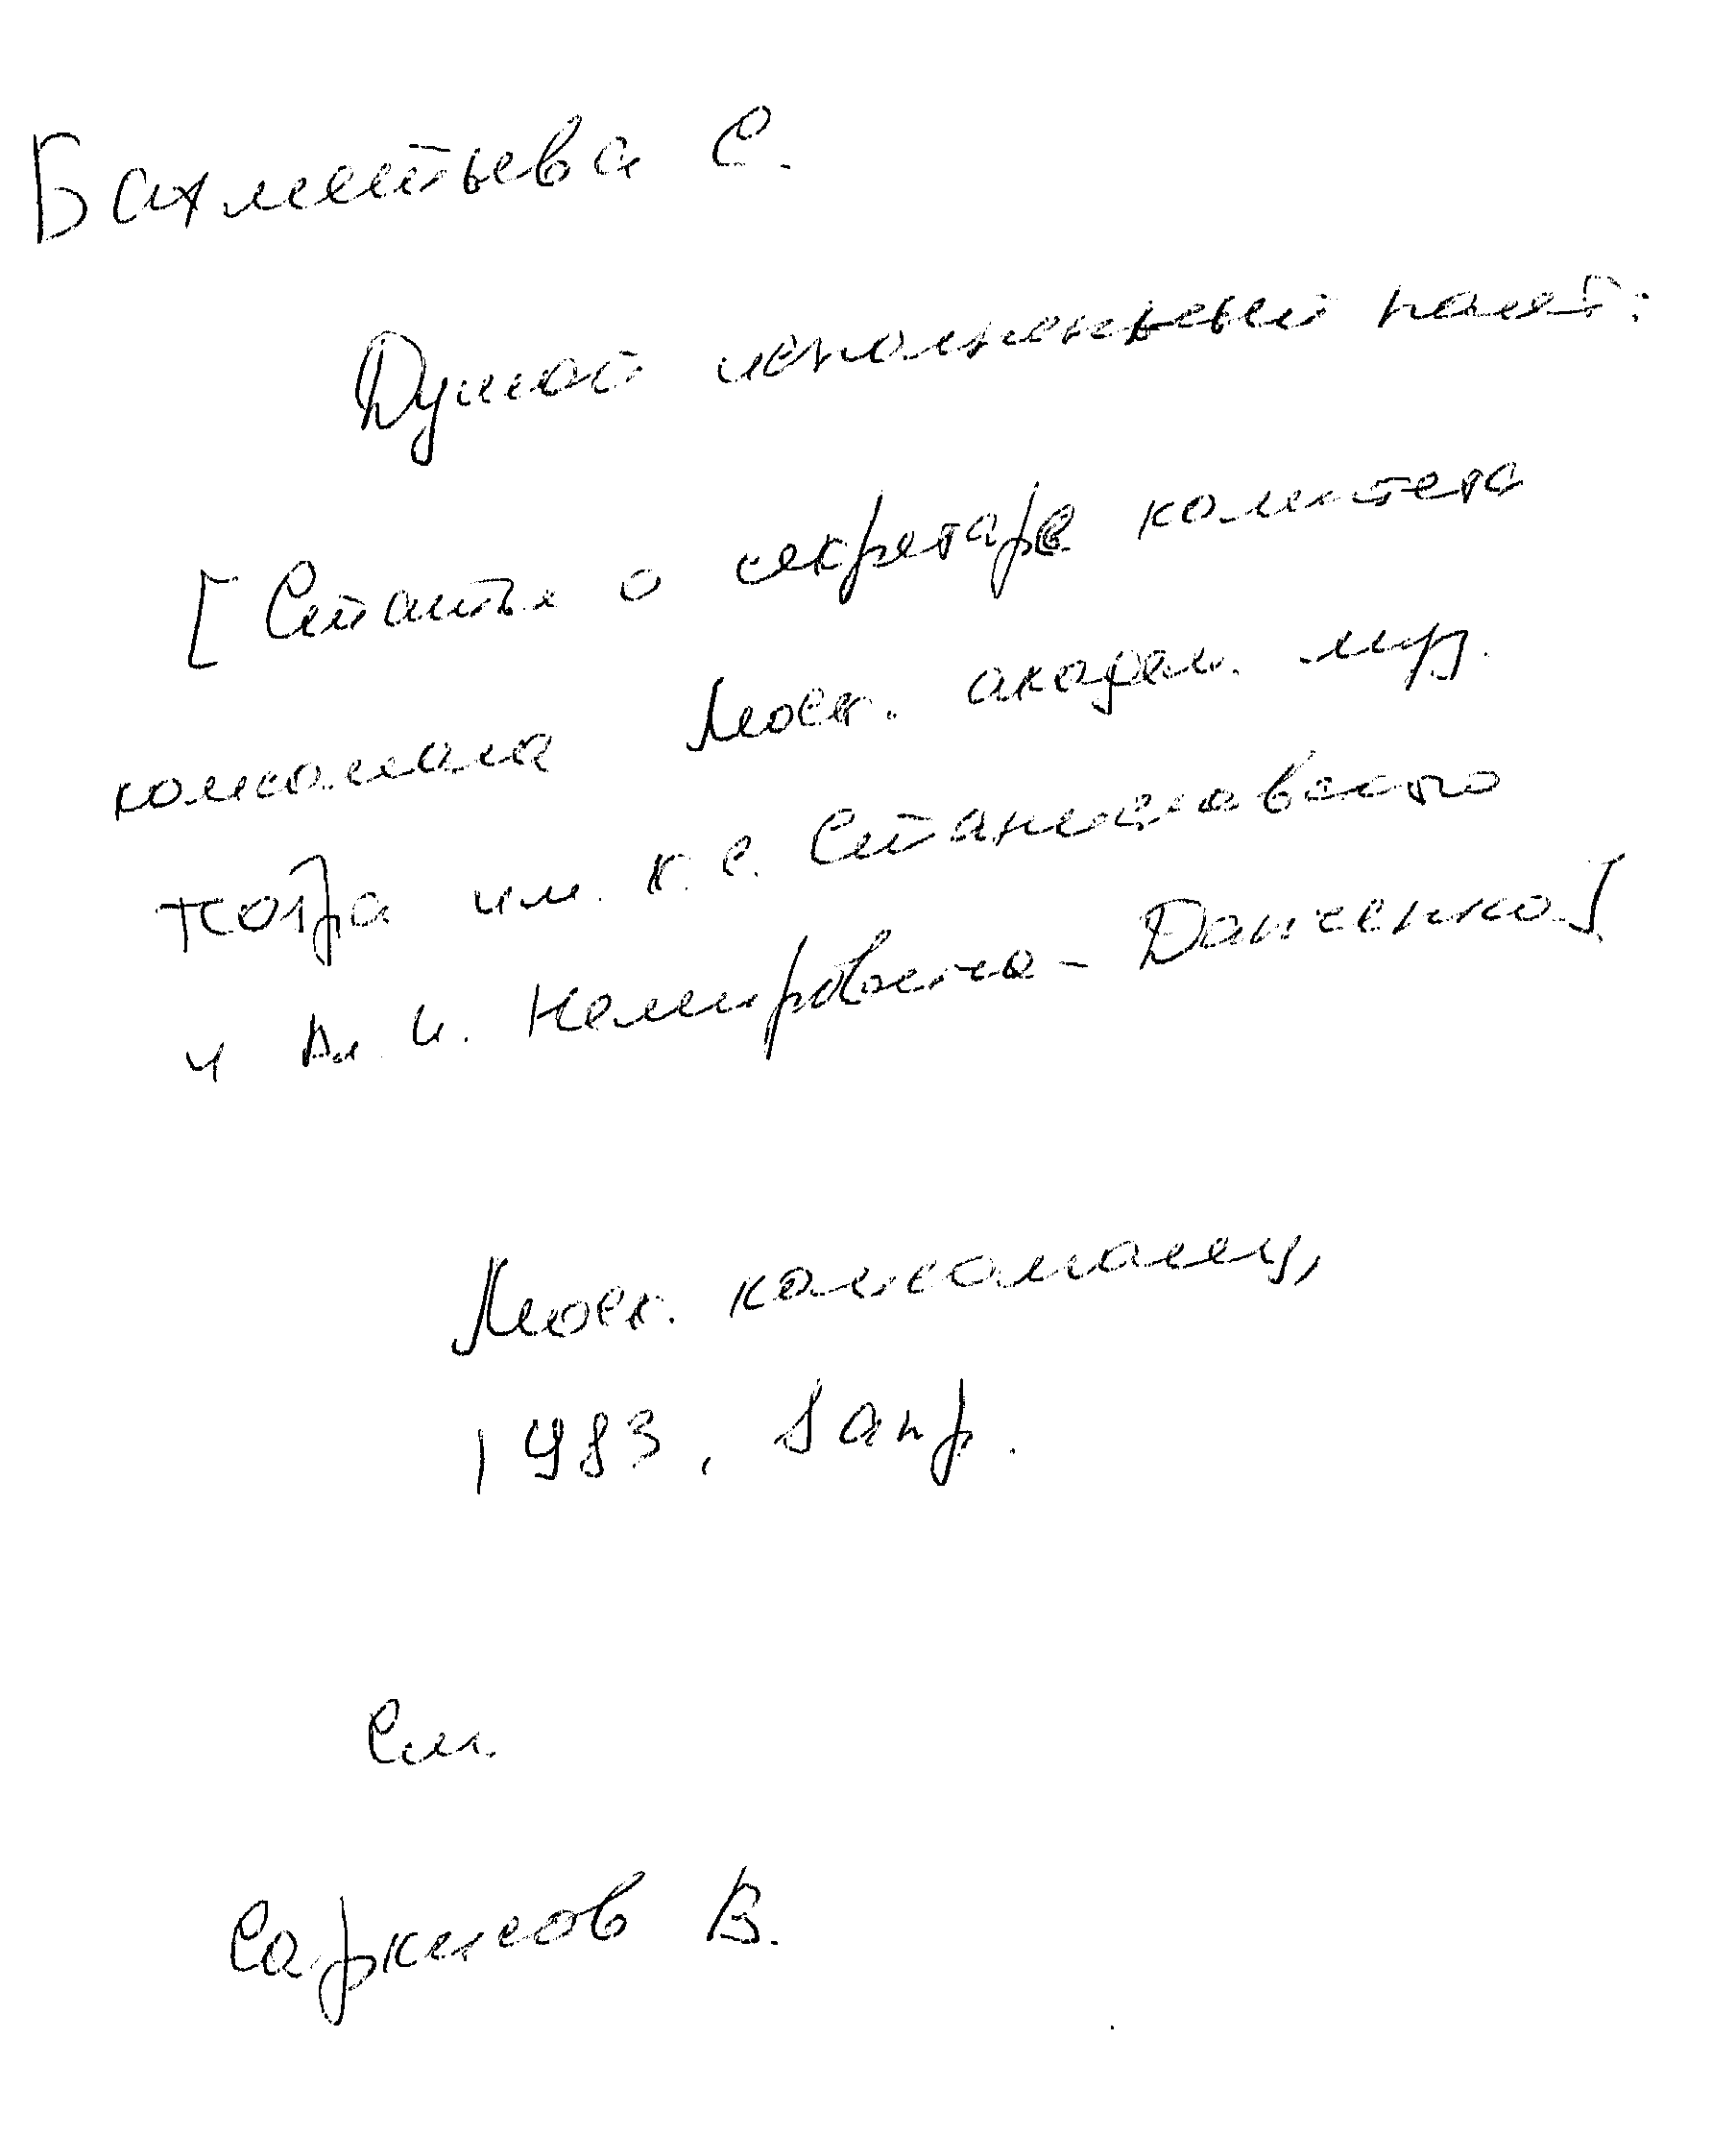 Бахметьева С.
Душой исполненный полет:
[Статья о секретаре комитета
комсомола Моск. академ. муз.
театра им. К. С. Станиславского
и Вл. И. Немировича-Данченко].
Моск. комсомолец,
1983, 8 апр.
См.
Саркисов В.